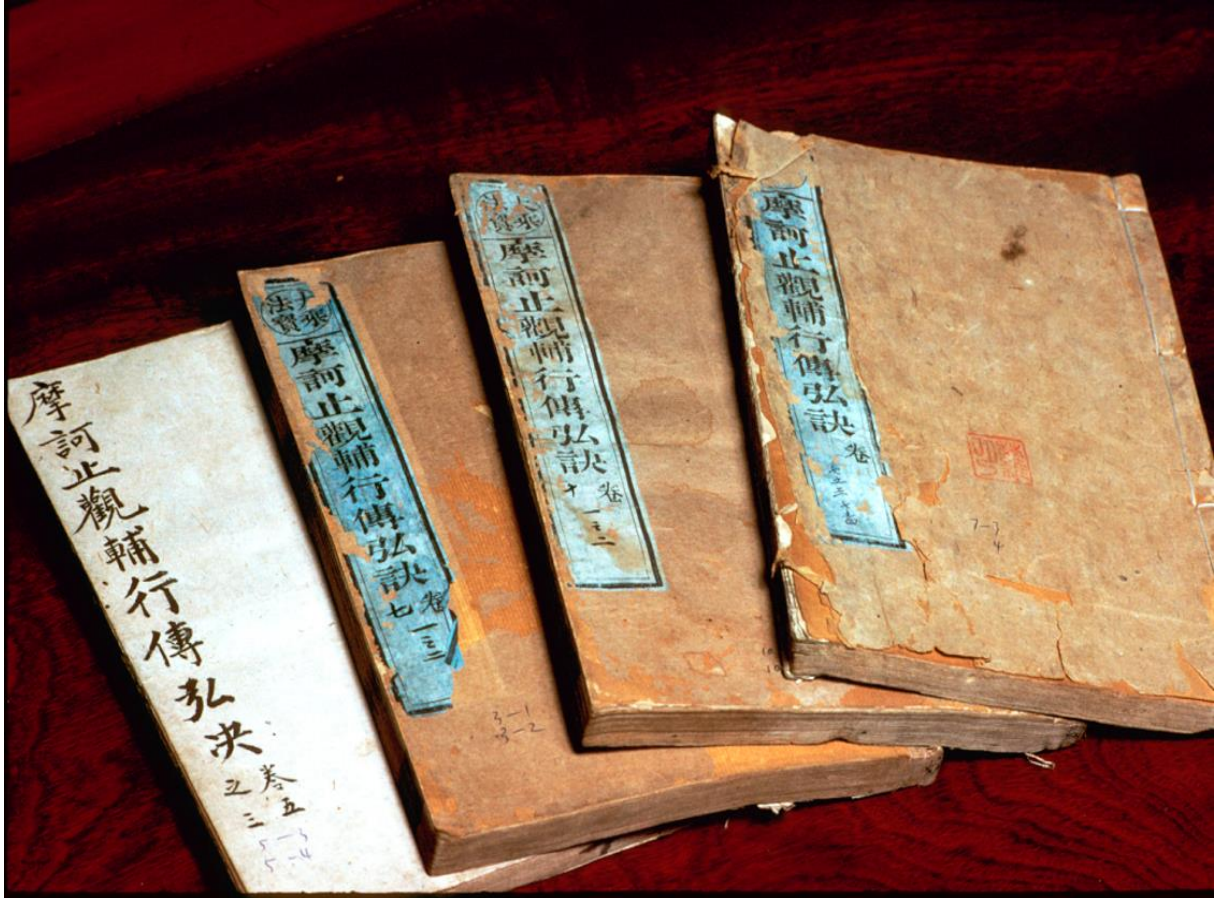 摩訶止觀輔行傳弘决
卷五
之三
5-3
5-4
大乘
法寶
摩訶止觀輔行傳弘訣
卷
七
一之二
3-1
3-2
大乘
法寶
摩訶止觀輔行傳弘訣
卷
十
一之二
摩訶止觀輔行傳弘訣
卷
7-3
4